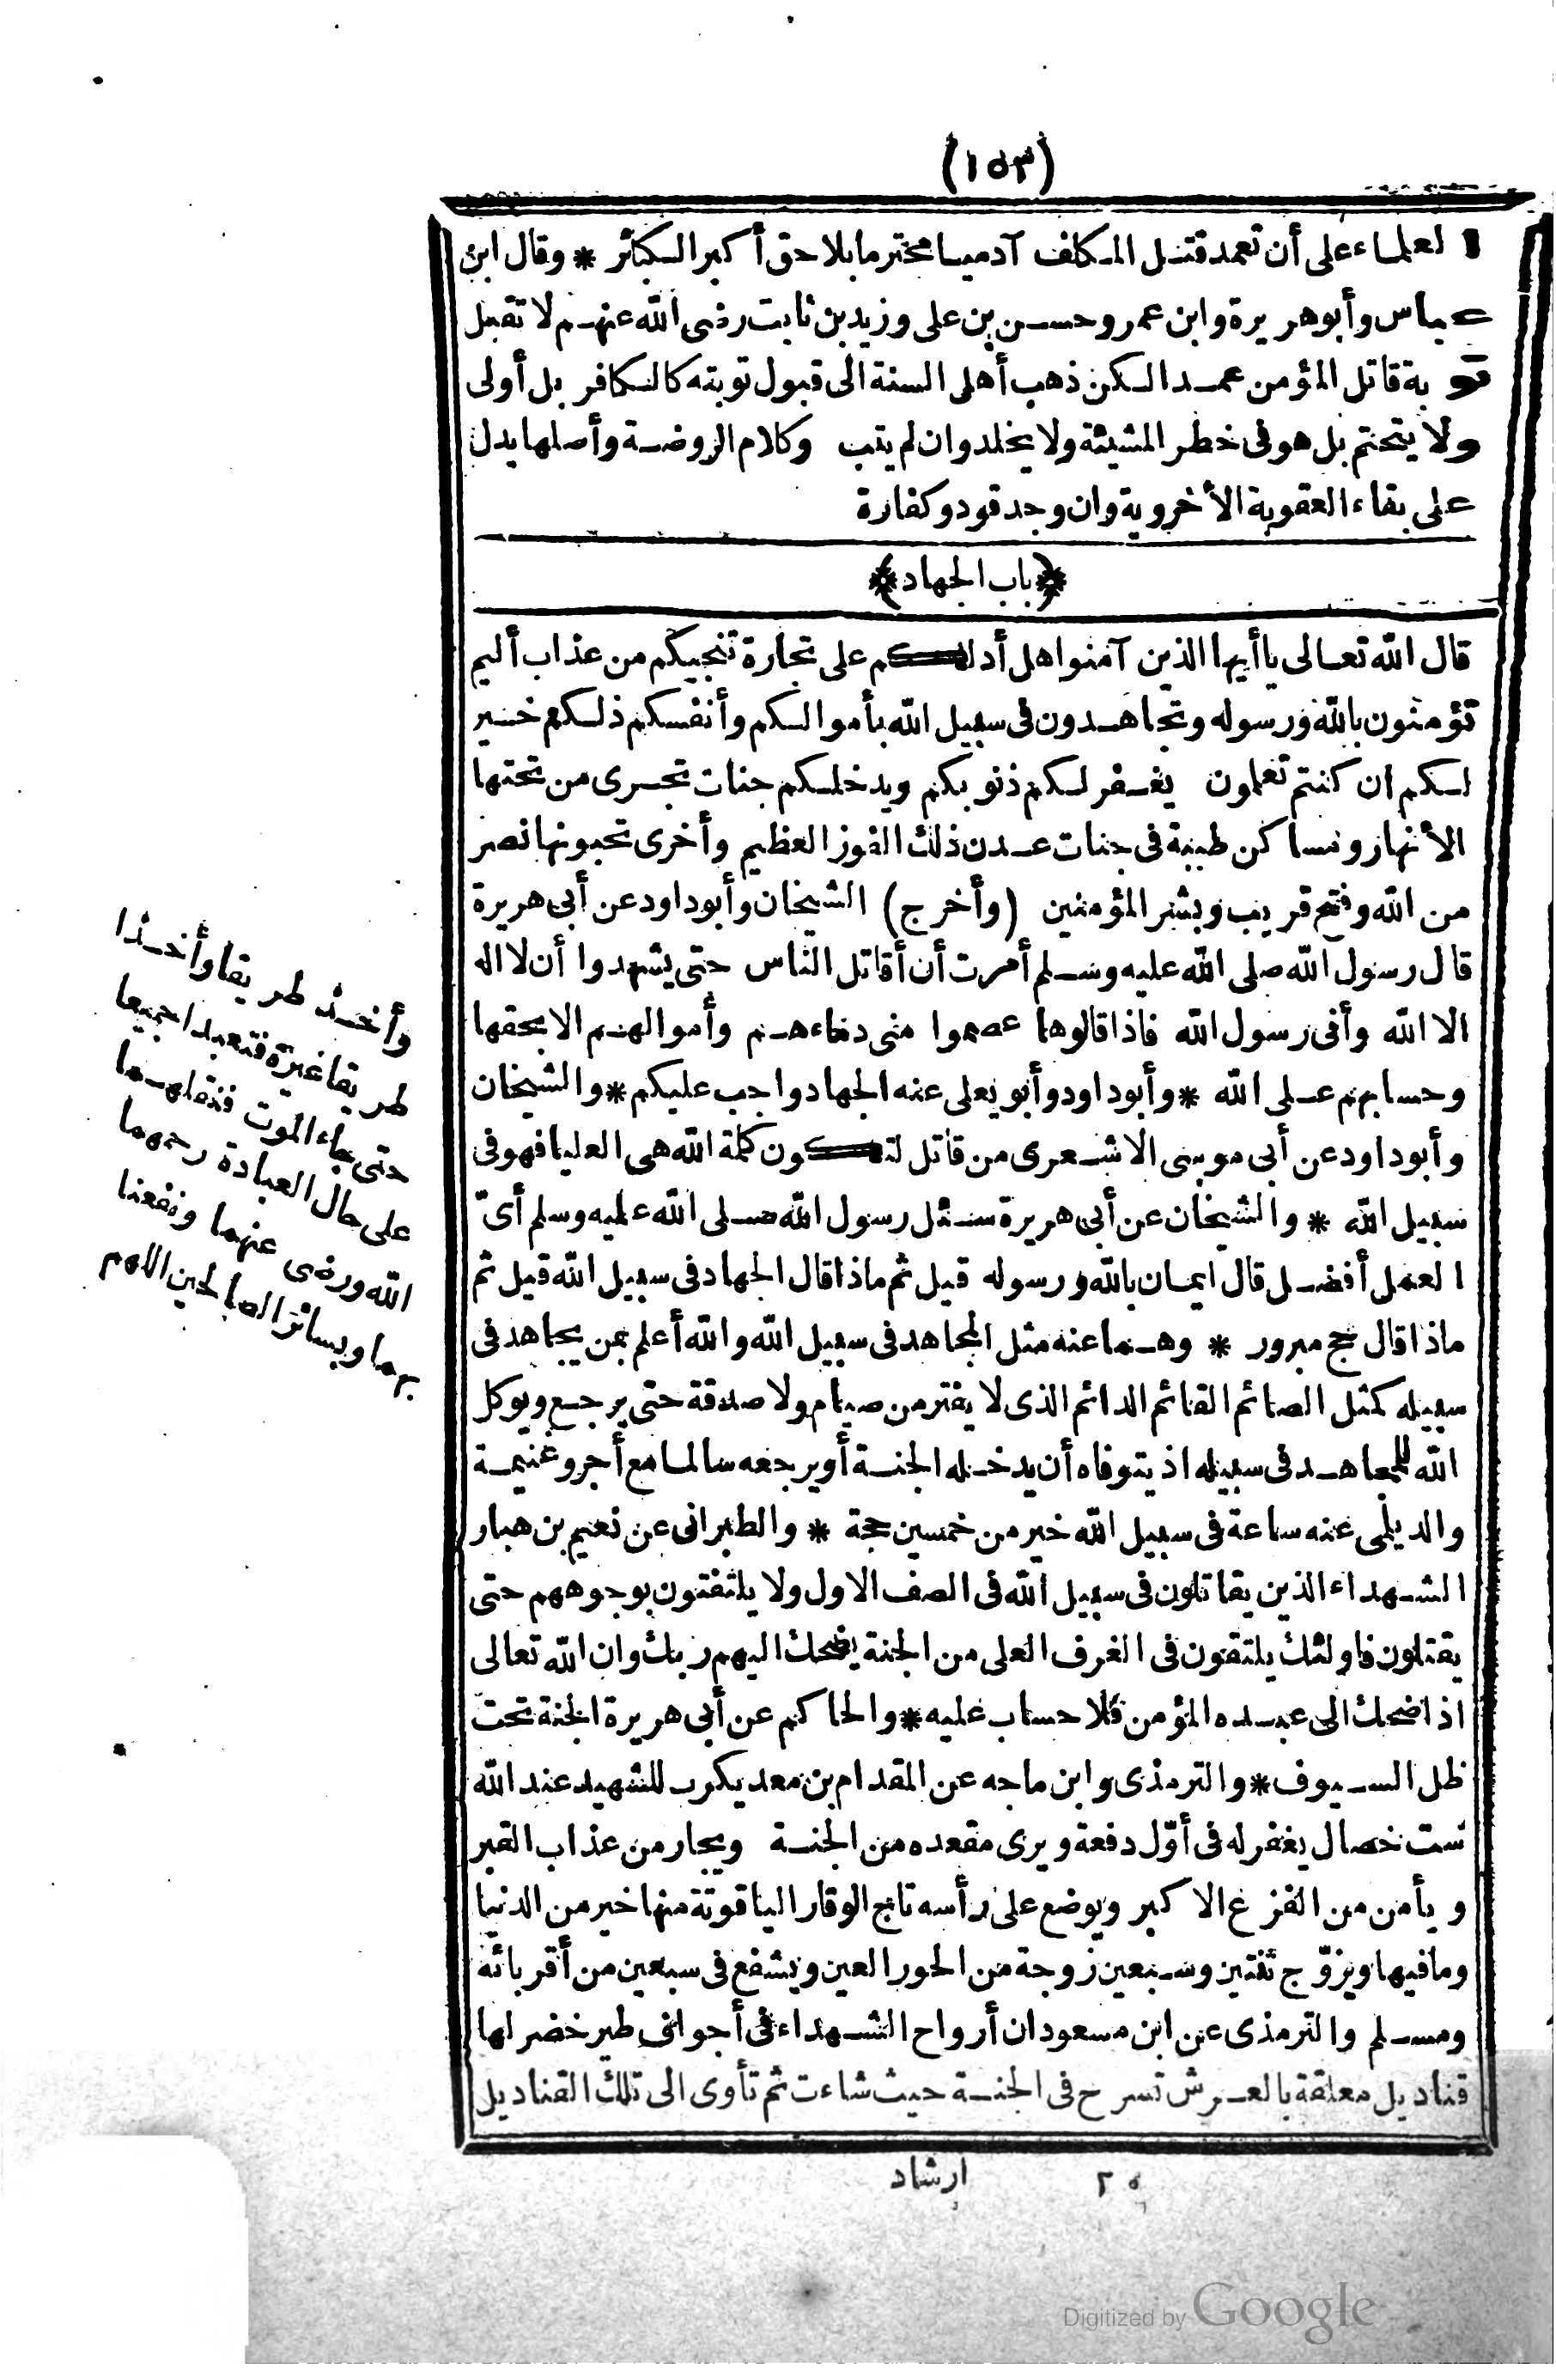 (١٥٣)
العلماء على أن تعمد قتل المكلف آدميا محترما بلا حق أكبر الكبائر * وقال ابن
عباس وأبو هريرة وابن عمر وحسن بن على وزيد بن ثابت رضى الله عنهم لا تقبل
توبة قاتل المؤمن عمدا لكن ذهب أهل السنة الى قبول توبته كالكافر بل أولى
ولا يتحتم بل هو فى خطر المشيئة ولا يخلد وان لم يتب وكلام الروضة وأصلها يدل
على بقاء العقوبة الأخروية وان وجد قود وكفارة
﴿باب الجهاد﴾
قال الله تعالى يا أيها الذين آمنوا هل أدلكم على تجارة تنجيكم من عذاب أليم
تؤمنون بالله ورسوله وتجاهدون فى سبيل الله بأموالكم وأنفسكم ذلكم خير
لكم ان كنتم تعلمون يغفر لكم ذنوبكم ويدخلكم جنات تجرى من تحتها
الأنهار ومساكن طيبة فى جنات عدن ذلك الفوز العظيم وأخرى تحبونها نصر
من الله وفتح قريب وبشر المؤمنين (وأخرج) الشيخان وأبو داود عن أبى هريرة
قال رسول الله صلى الله عليه وسلم أمرت أن أقاتل الناس حتى يشهدوا أن لا اله
الا الله وأنى رسول الله فاذا قالوها عصموا منى دماءهم وأموالهم الا بحقها
وحسابهم على الله * وأبو داود وأبو يعلى عنه الجهاد واجب عليكم * والشيخان
وأبو داود عن أبى موسى الاشعرى من قاتل لتكون كلمة الله هى العليا فهو فى
سبيل الله * والشيخان عن أبى هريرة سئل رسول الله صلى الله عليه وسلم أىّ
العمل أفضل قال ايمان بالله ورسوله قيل ثم ماذا قال الجهاد فى سبيل الله قيل ثم
ماذا قال حج مبرور * وهما عنه مثل المجاهد فى سبيل الله والله أعلم بمن يجاهد فى
سبيله كمثل الصائم القائم الدائم الذى لا يفتر من صيام ولا صدقة حتى يرجع ويوكل
الله للمجاهد فى سبيله اذ يتوفاه أن يدخله الجنة أو يرجعه سالما مع أجر وغنيمة
والديلمى عنه ساعة فى سبيل الله خير من خمسين حجة * والطبرانى عن نعيم بن هبار
الشهداء الذين يقاتلون فى سبيل الله فى الصف الاول ولا يلتفتون بوجوههم حتى
يقتلون فاولئك يلتقون فى الغرف العلى من الجنة يضحك اليهم ربك وان الله تعالى
اذا ضحك الى عبده المؤمن فلا حساب عليه * والحاكم عن أبى هريرة الجنة تحت
ظل السيوف * والترمذى وابن ماجه عن المقدام بن معد يكرب للشهيد عند الله
ست خصال يغفر له فى أوّل دفعة ويرى مقعده من الجنة ويجار من عذاب القبر
ويأمن من الفزع الاكبر ويوضع على رأسه تاج الوقار الياقوتة منها خير من الدنيا
وما فيها ويزوّج ثنتين وسبعين زوجة من الحور العين ويشفع فى سبعين من أقربائه
ومسلم والترمذى عن ابن مسعود ان أرواح الشهداء فى أجواف طير خضر لها
قناديل معلقة بالعرش تسرح فى الجنة حيث شاءت ثم تأوى الى تلك القناديل
وأخذ طريقا وأخذا
طريقا غيره فتعبدا جميعا
حتى جاء الموت فنقلهما
على حال العبادة رحمهما
الله ورضى عنهما ونفعنا
بهما وبسائر الصالحين اللهم
٢٠ ارشاد
Digitized by Google